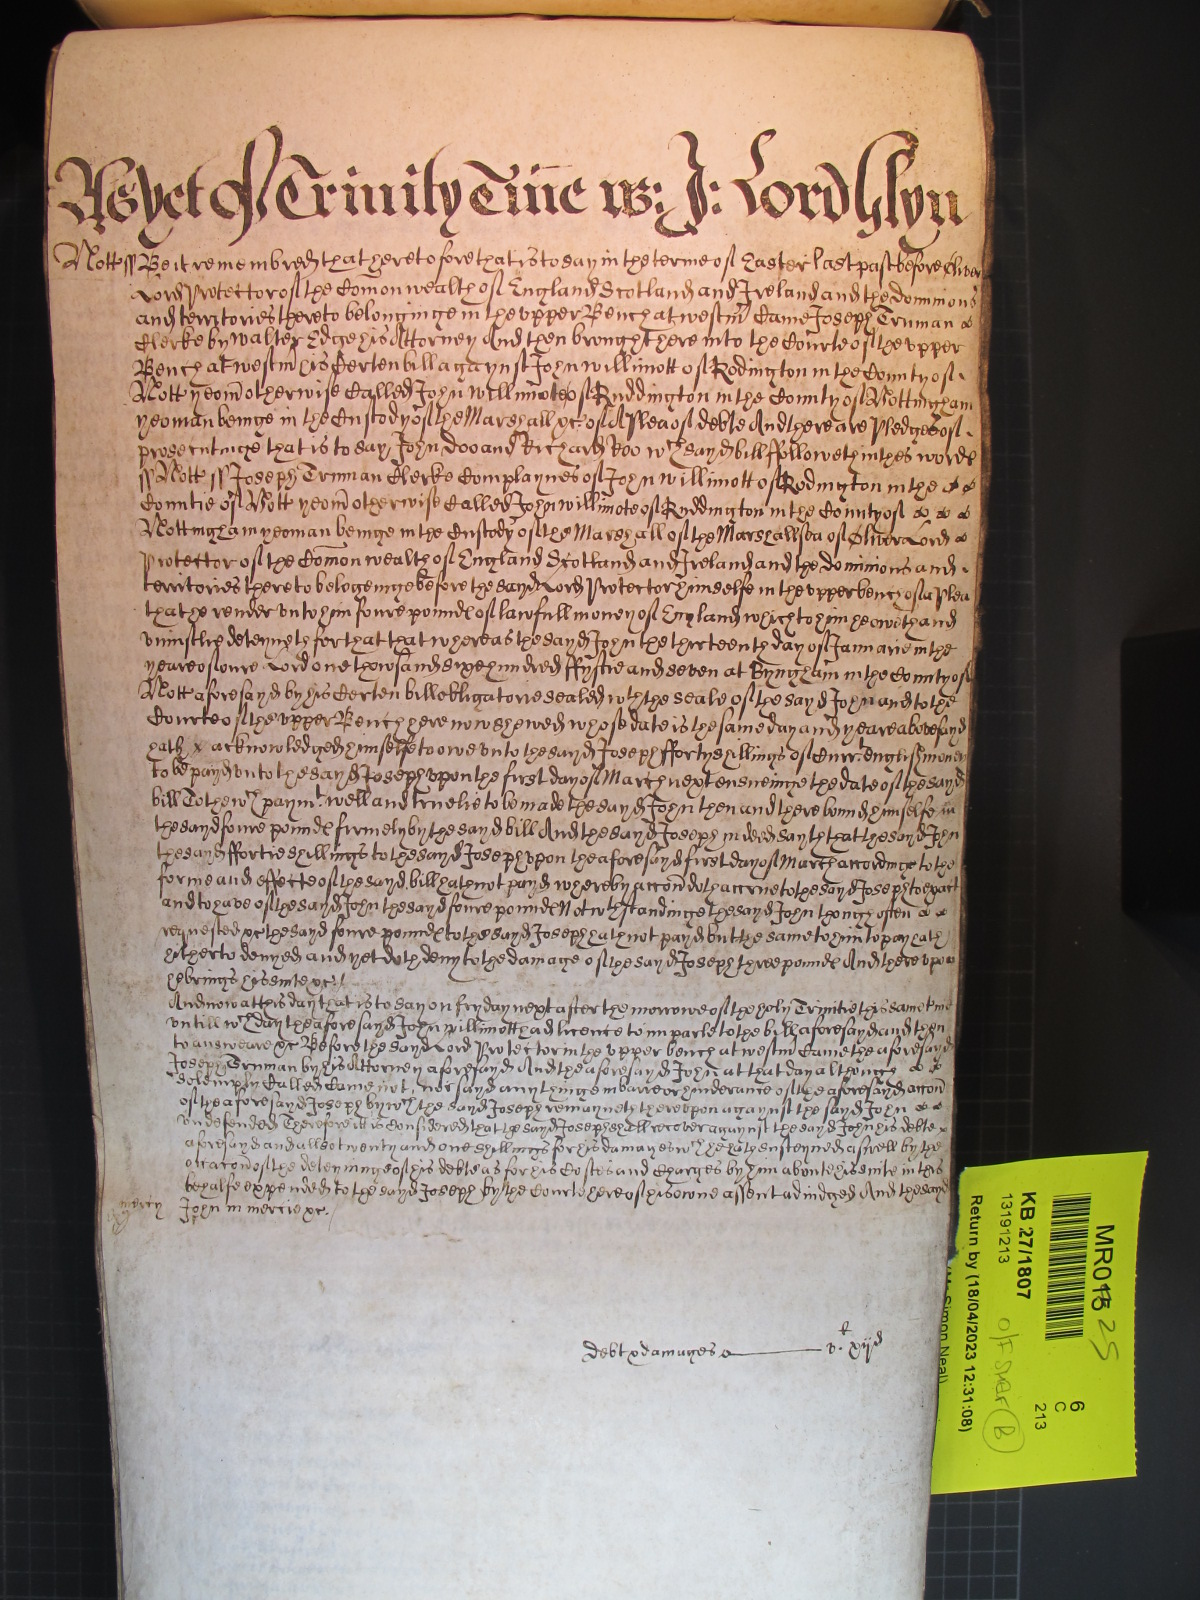 As yet of Trinity Time ws: J: Lord Glyn
Nott ss Be it remembred that heretofore that is to say in the terme of Easter last past before Oliver
Lord Protector of the Comonwealth of England Scotland and Ireland and the dominions
and territories thereto belonginge in the upper Bench at westm Came Joseph Truman
Clerke by Walter Edge his Attorney And then brought here into the Courte of the upper
Bench at westm his Certen bill agaynst John Willimott of Rodington in the County of
Nott yeom otherwise Called John Willimote of Ruddington in the County of Nottingham
yeoman beinge in the Custody of the Marshall &c of A Plea of debte And there are Pledges of
prosecutinge that is to say John Doo and Richard Roo wch sayd bill followeth in thes wordes
ss Nott ss Joseph Truman Clerke Complaynes of John Willimott of Rodington in the
Countie of Nott yeom otherwise Called John Willimote of Ruddington in the County of
Nottingham yeoman beinge in the Custody of the Marshall of the Marshallsea of Oliver Lord
Protector of the Comonwealth of England Scotland and Ireland and the dominions and
territories thereto beloginge before the sayd Lord Protector himselfe in the upper bench of a Plea
that he render unto him foure poundes of lawfull money of England which to him he owith and
uniustlie deteyneth for that that whereas the sayd John the thirteenth day of Januarie in the
yeare of oure Lord one thowsand sixe hundred ffyftie and seven at Byngham in the County of
Nott aforesayd by his Certen bill obligatorie sealed wth the seale of the sayd John and to the
Courte of the upper Bench here now shewed whose date is the same day and yeare abovesayd
hath acknowledged himselfe to owe unto the sayd Joseph ffortyshillings of Curr. English money
to be payd unto the sayd Joseph upon the first day of March next ensueinge the date of the sayd
bill To the wch paymt well and truelie to be made the sayd John then and there bound himselfe in
the sayd foure poundes firmely by the sayd bill And the sayd Joseph in deed sayth that the sayd John
the sayd ffortie shillings to the sayd Joseph upon the aforesayd first day of March accordinge to the
forme and effecte of the sayd bill hath not payd whereby accon doth accrue to the sayd Joseph to exact
and to have of the sayd John the sayd foure poundes Notwthstandinge the sayd John though often
requested &c the sayd foure poundes to the sayd Joseph hath not payd but the same to him to pay hath
hitherto denyed and yet doth deny to the damage of the sayd Joseph three poundes And thereupon
he brings his suite &c
And now at this day that is to say on fryday next after the morrowe of the holy Trinitie this same tme
untill wch day the aforesayd John Willimott had licence to imparle to the bill aforesayd and then
to answeare &c Before the sayd Lord Protector in the upper bench at westm Came the aforesayd
Joseph Truman by his Attorney aforesayd And the aforesayd John at that day although
solempnly Called Came not, nor sayd any thinge in barre or hinderance of the aforesayd accon
of the aforesayd Joseph by wch the sayd Joseph remayneth thereupon agaynst the sayd John
undefended Therefore itt is Considered that the sayd Joseph shall recover agaynst the sayd John his debte
aforesayd and allso twenty and one shillings for his damages wch he hath susteyned aswell by the
occacon of the deteyninge of his debte as for his Costes and Charges by him aboute his suite in this
behalfe expended to the sayd Joseph by the Courte here of his owne assent adiudged And the sayd
mercy John in mercie &c.
debt & damages v. li xijd
MR018 25
KB 27/1807
13191213
Return by (18/04/2023 12:31:08)
Simon Neal)
6
C
213